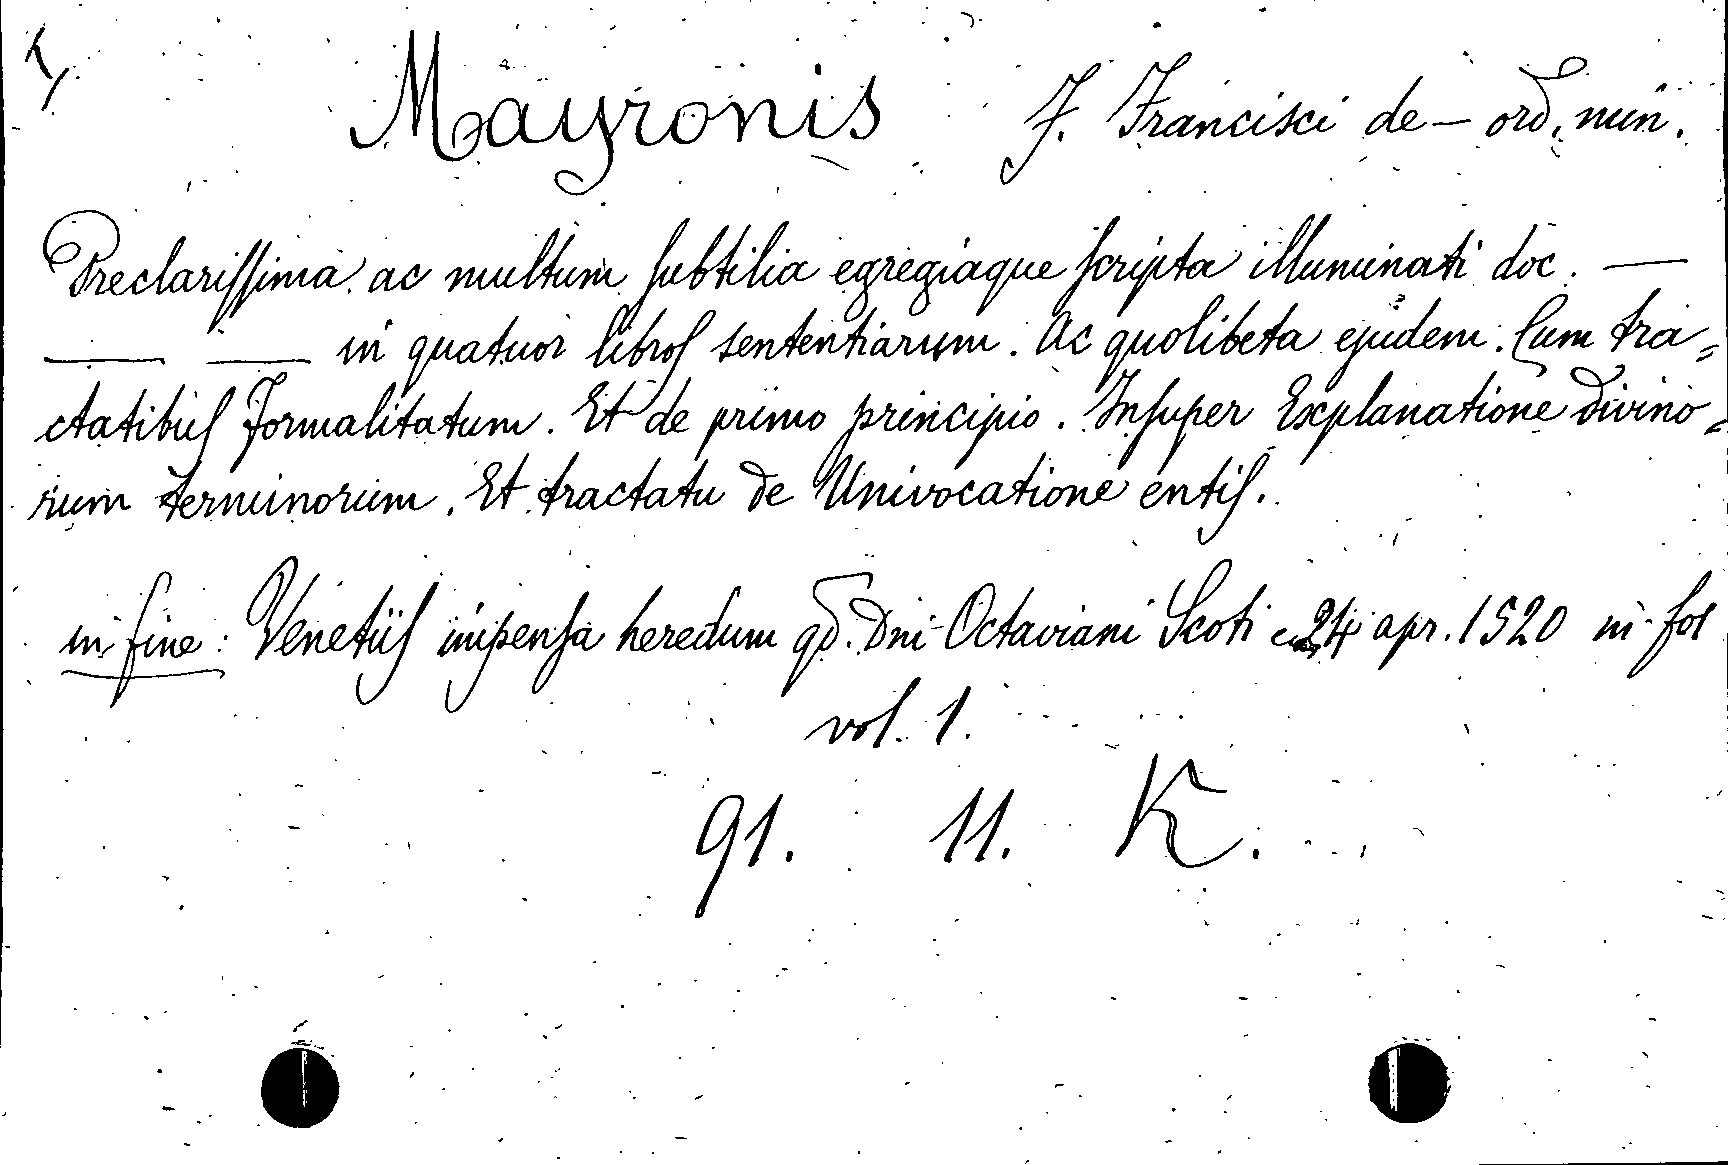 Mayronis F. Francisci de — ord. min.
Preclarissima ac multum subtilia egregiaque scripta illuminati doc. —
— — in quatuor libros sententiarum. Ac quolibeta ejusdem. Cum tra=
ctatibus formalitatum. Et de primo principio. Insuper Explanatione divino=
rum terminorum. Et tractatu de Univocatione entis.
in fine: Venetiis impensa heredum qd. Dni Octaviani Scoti 24 apr. 1520 in fol
vol. 1.
91. 11. K.